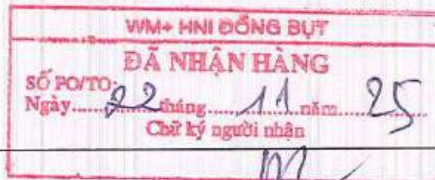 WM+ HNI ĐỒNG BỤT
ĐÃ NHẬN HÀNG
SỐ PO/TO:
Ngày.....22.....tháng.....11.....năm.....25
Chữ ký người nhận